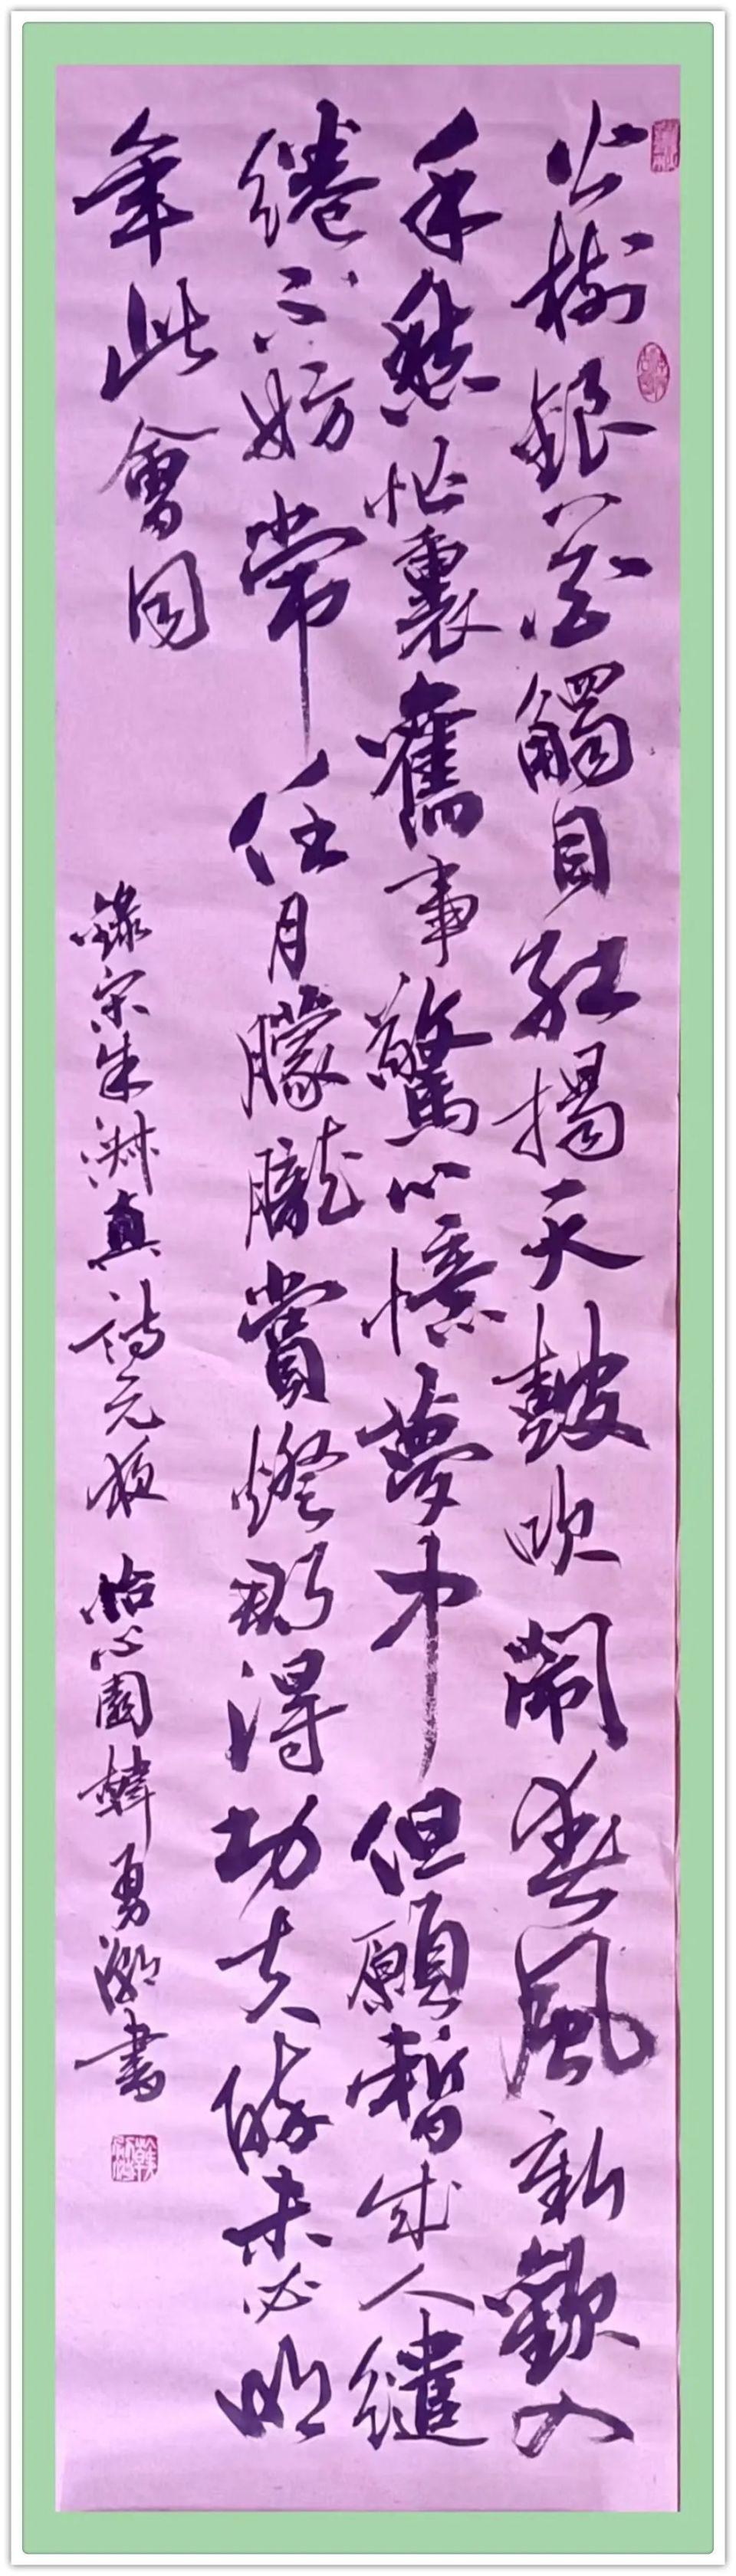 火樹銀花觸目紅揭天鼓吹鬧春風新歡入
手愁忙裏舊事驚心憶夢中但願暫成人繾
綣不妨常任月朦朧賞燈那得功夫醉未必明
年此會同
錄宋朱淑真詩元夜 怡心園韓勇書